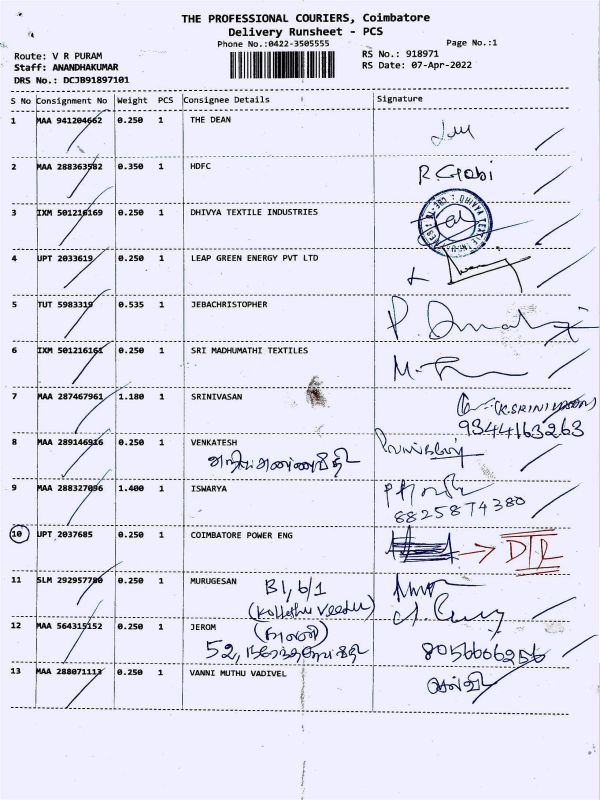 THE PROFESSIONAL COURIERS, Coimbatore
Delivery Runsheet - PCS
Phone No.:0422-3505555
Page No.:1
Route: V R PURAM
RS No.: 918971
Staff: ANANDHAKUMAR
RS Date: 07-Apr-2022
DRS No.: DCJB91897101
S No Consignment No Weight PCS Consignee Details Signature
1 MAA 941204662 0.250 1 THE DEAN
2 MAA 288363582 0.350 1 HDFC R. Gobi
3 IXM 501216169 0.250 1 DHIVYA TEXTILE INDUSTRIES
4 UPT 2033619 0.250 1 LEAP GREEN ENERGY PVT LTD
5 TUT 5983319 0.535 1 JEBACHRISTOPHER
6 IXM 501216161 0.250 1 SRI MADHUMATHI TEXTILES
7 MAA 287467961 1.180 1 SRINIVASAN (K.SRINIVASAN)
9344163263
8 MAA 289146916 0.250 1 VENKATESH
9 MAA 288327096 1.400 1 ISWARYA
8825874380
10 UPT 2037685 0.250 1 COIMBATORE POWER ENG DTR
11 SLM 292957780 0.250 1 MURUGESAN B1, 6/1
(Kollathu Veedu)
12 MAA 564315152 0.250 1 JEROM
52, 8056606256
13 MAA 288071113 0.250 1 VANNI MUTHU VADIVEL செல்வி